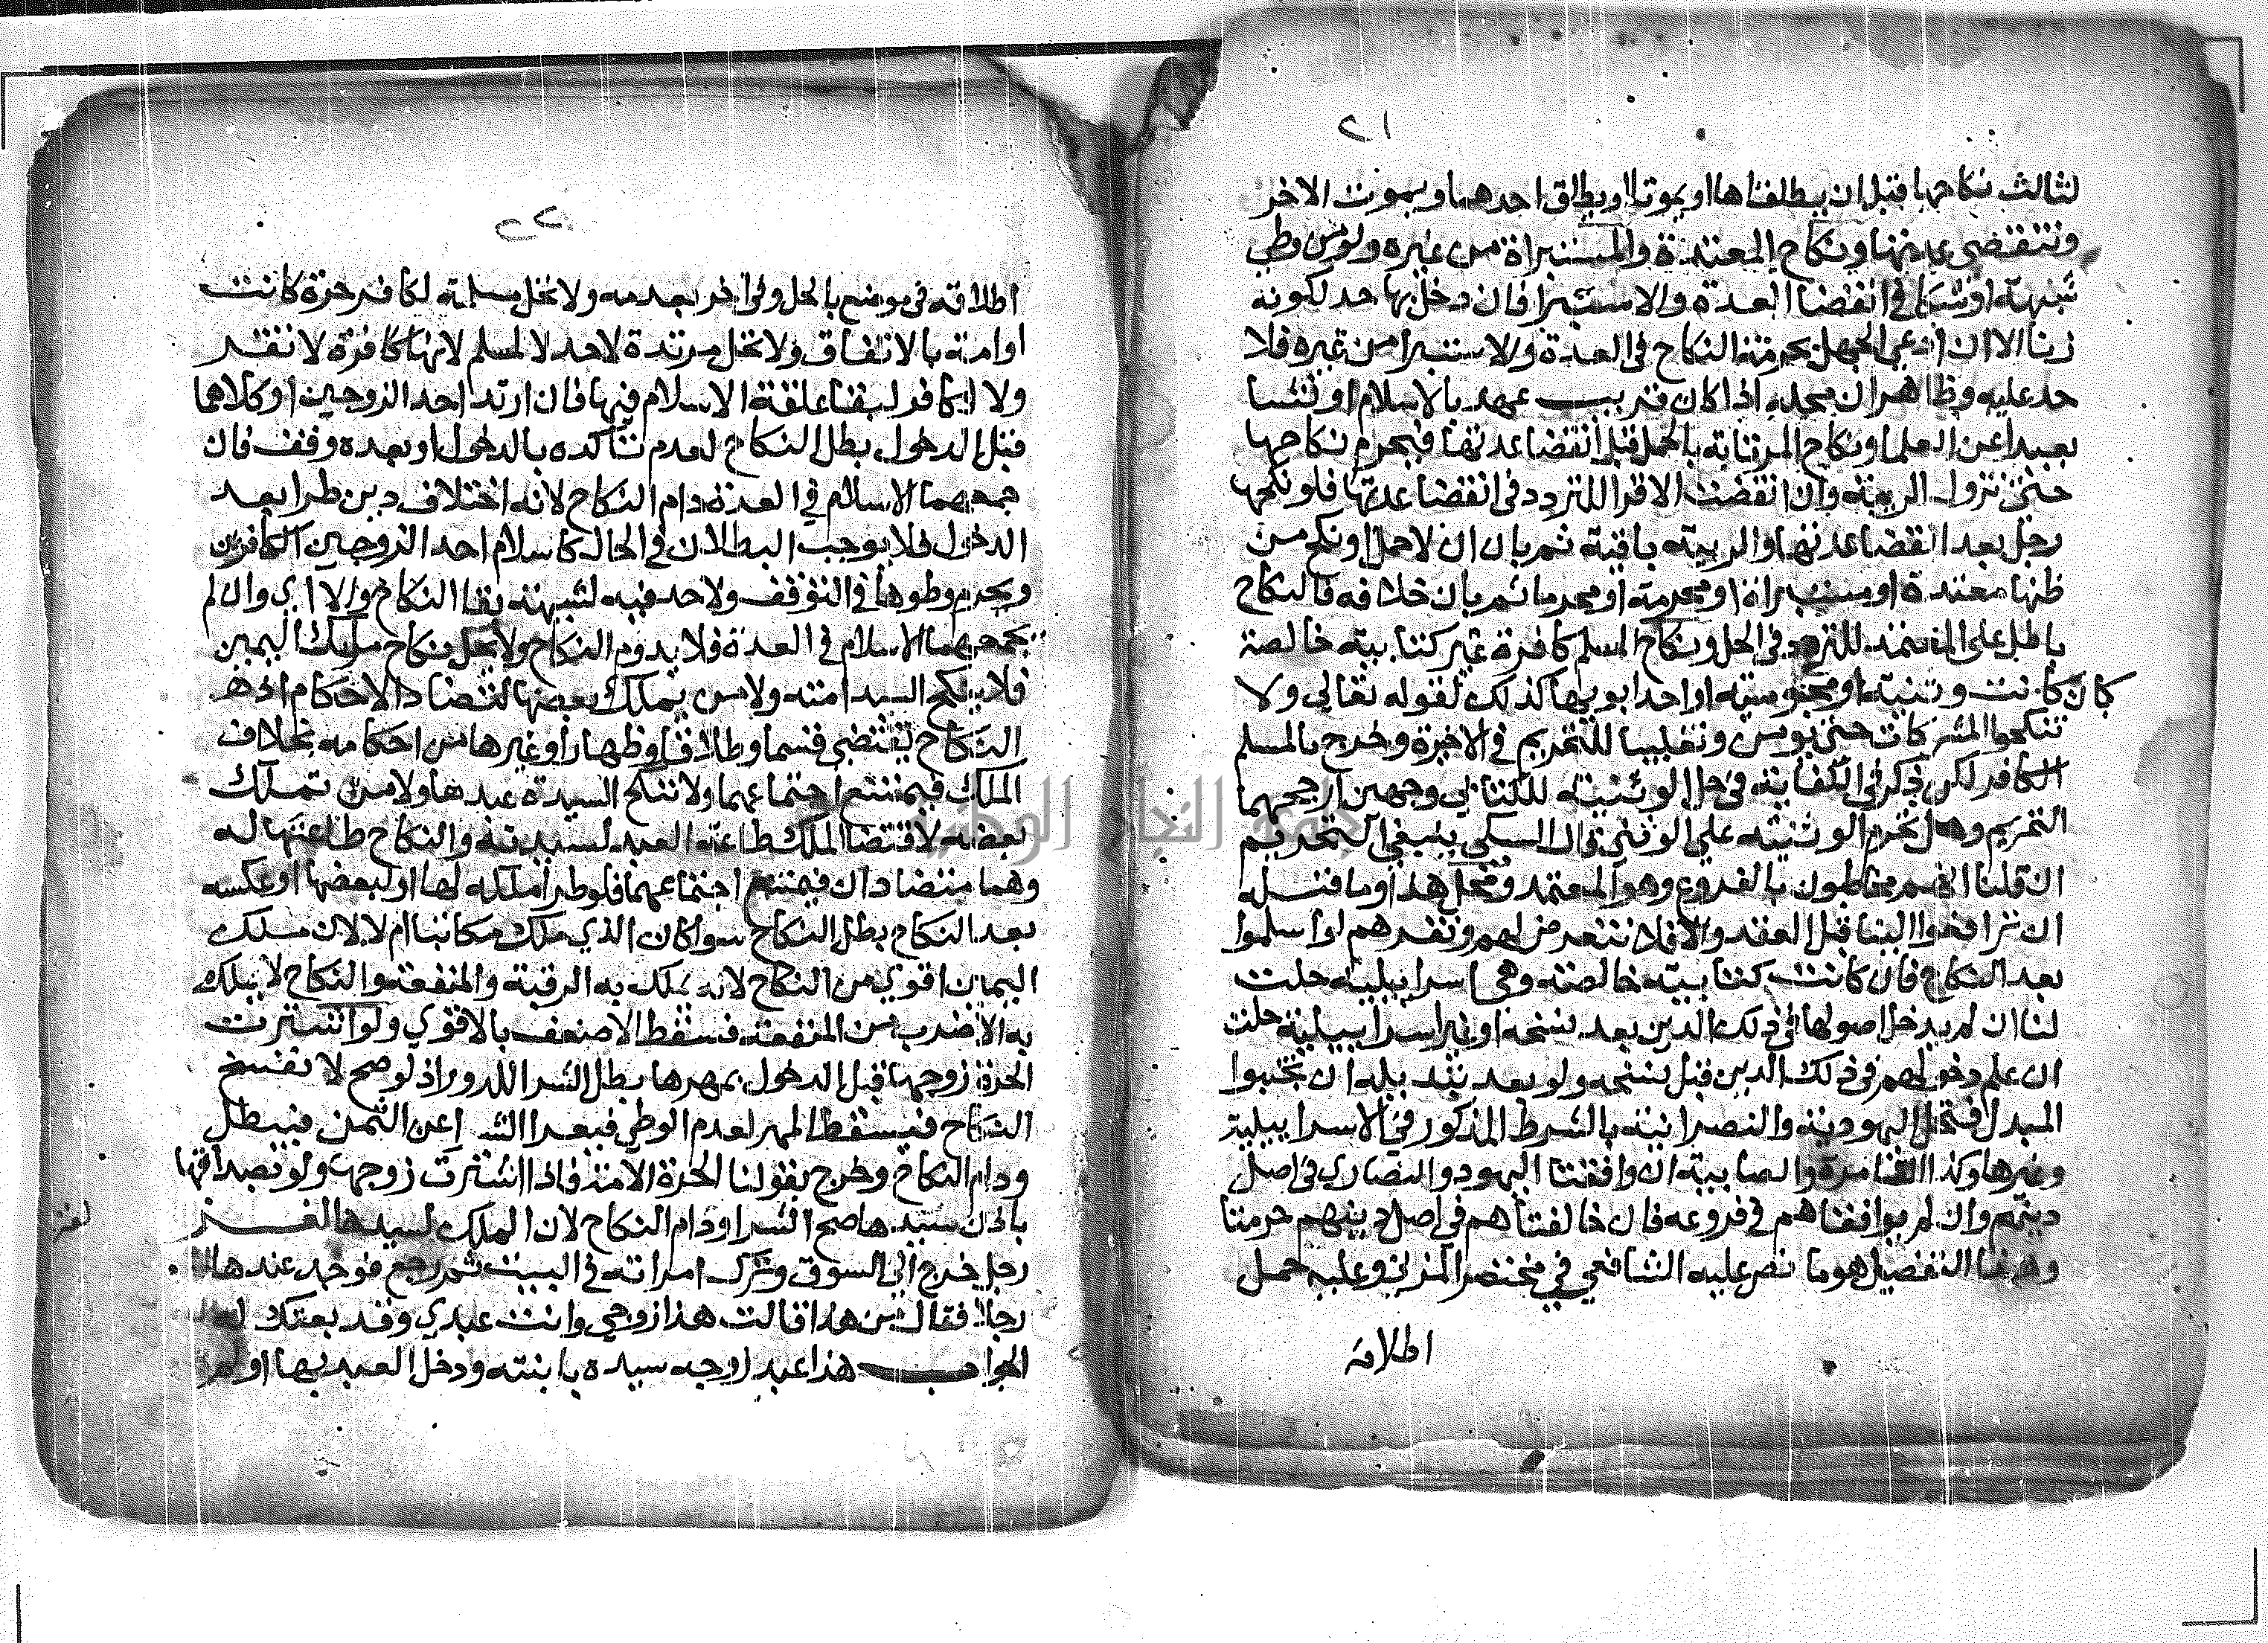 ٢١
لثالث نكاحها قبل ان يطلقاها او يموتا او يطلق احدهما ويموت الاخر
وتنقضي عدتها ونكاح المعتدة والمستبراة من غيره ولو من وطى
شبهة او شكا في انقضا العدة والاستبرا فان دخل بها حد لكونه
زنا الا ان ادعى الجهل بحرمة النكاح في العدة والاستبرا من غيره فلا
حد عليه وظاهر ان محله اذا كان قريب عهد بالاسلام او نشا
بعيدا عن العلما ونكاح المرتابة بالحمل قبل انقضا عدتها فيحرم نكاحها
حتى تزول الريبة وان انقضت الاقرا للتردد في انقضا عدتها فلو نكحها
رجل بعد انقضا عدتها والريبة باقية ثم بان ان لا حمل او نكح من
ظنها معتدة او مستبراة او محرمة او محرما ثم بان خلافه فالنكاح
باطل على المعتمد للتردد في الحل ونكاح المسلم كافرة غير كتابية خالصة
كان كانت وثنية او مجوسية او احد ابويها كذلك لقوله تعالى ولا
تنكحوا المشركات حتى يومن وتغليبا للتحريم في الاخيرة وخرج بالمسلم
الكافر لكن ذكر في الكفاية في حل الوثنية للكتابي وجهين ارجحهما
التحريم وهل تحرم الوثنية على الوثني قال السبكي ينبغي التحريم
ان قلنا انهم مخاطبون بالفروع وهو المعتمد ومحل هذا وما قبله
ان ترافعوا الينا قبل العقد والا فلا نتعرض لهم ونقرهم لو اسلموا
بعد النكاح فان كانت كتابية خالصة وهي اسراييلية حلت
لنا ان لم يدخل اصولها في ذلك الدين بعد نسخه او غير اسراييلية حلت
ان علم دخولهم في ذلك الدين قبل نسخه ولو بعد تبديله ان تجنبوا
المبدل فتحل اليهودية والنصرانية بالشرط المذكور في الاسراييلية
وغيرها وكذا السامرة والصابية ان وافقتا اليهود والنصارى في اصل
دينهم وان لم يوافقاهم في فروعه فان خالفتاهم في اصل دينهم حرمتا
وهذا التفصيل هو ما نص عليه الشافعي في مختصر المزني وعليه حمل
اطلاقه
٢٢
اطلاقه في موضع بالحل وفي اخر بعدمه ولا تحل مسلمة لكافر حرة كانت
او امة بالاتفاق ولا تحل مرتدة لاحد لا لمسلم لانها كافرة لا تقر
ولا لكافر لبقا علقة الاسلام فيها فان ارتد احد الزوجين او كلاهما
قبل الدخول بطل النكاح لعدم تأكده بالدخول او بعده وقف فان
جمعهما الاسلام في العدة دام النكاح لانه اختلاف دين طرا بعد
الدخول فلا يوجب البطلان في الحال كاسلام احد الزوجين الكافرين
ويحرم وطوها في التوقف ولا حد فيه لشبهة بقا النكاح والا اي وان لم
يجمعهما الاسلام في العدة فلا يدوم النكاح ولا يحل نكاح ملك اليمين
فلا ينكح السيد امته ولا من يملك بعضها لتضاد الاحكام اذ
النكاح يقتضي قسما وطلاقا وظهارا وغيرها من احكامه بخلاف
الملك فيمتنع اجتماعهما ولا تنكح السيدة عبدها ولا من تملك
بعضه لاقتضا الملك طاعة العبد لسيدته والنكاح طاعتها له
وهما متضادان فيمتنع اجتماعهما فلو طرا ملكه لها او لبعضها او عكسه
بعد النكاح بطل النكاح سوا كان الذي ملك مكاتبا ام لا لان ملك
اليمين اقوى من النكاح لانه يملك به الرقبة والمنفعة والنكاح لا يملك
به الا ضرب من المنفعة فسقط الاضعف بالاقوى ولو اشترت
الحرة زوجها قبل الدخول بمهرها بطل الشرا للدور اذ لو صح لا نفسخ
النكاح فيسقط المهر لعدم الوطي فيعرا الشرا عن الثمن فيبطل
ودام النكاح وخرج بقولنا الحرة الامة فاذا اشترت زوجها ولو بصداقها
باذن سيدها صح الشرا ودام النكاح لان الملك لسيدها لغز
رجل خرج الى السوق وترك امراته في البيت ثم رجع فوجد عندها
رجلا فقال من هذا قالت هذا زوجي وانت عبدي وقد بعتك له
الجواب هذا عبد زوجه سيده بابنته ودخل العبد بها او لم
لغز